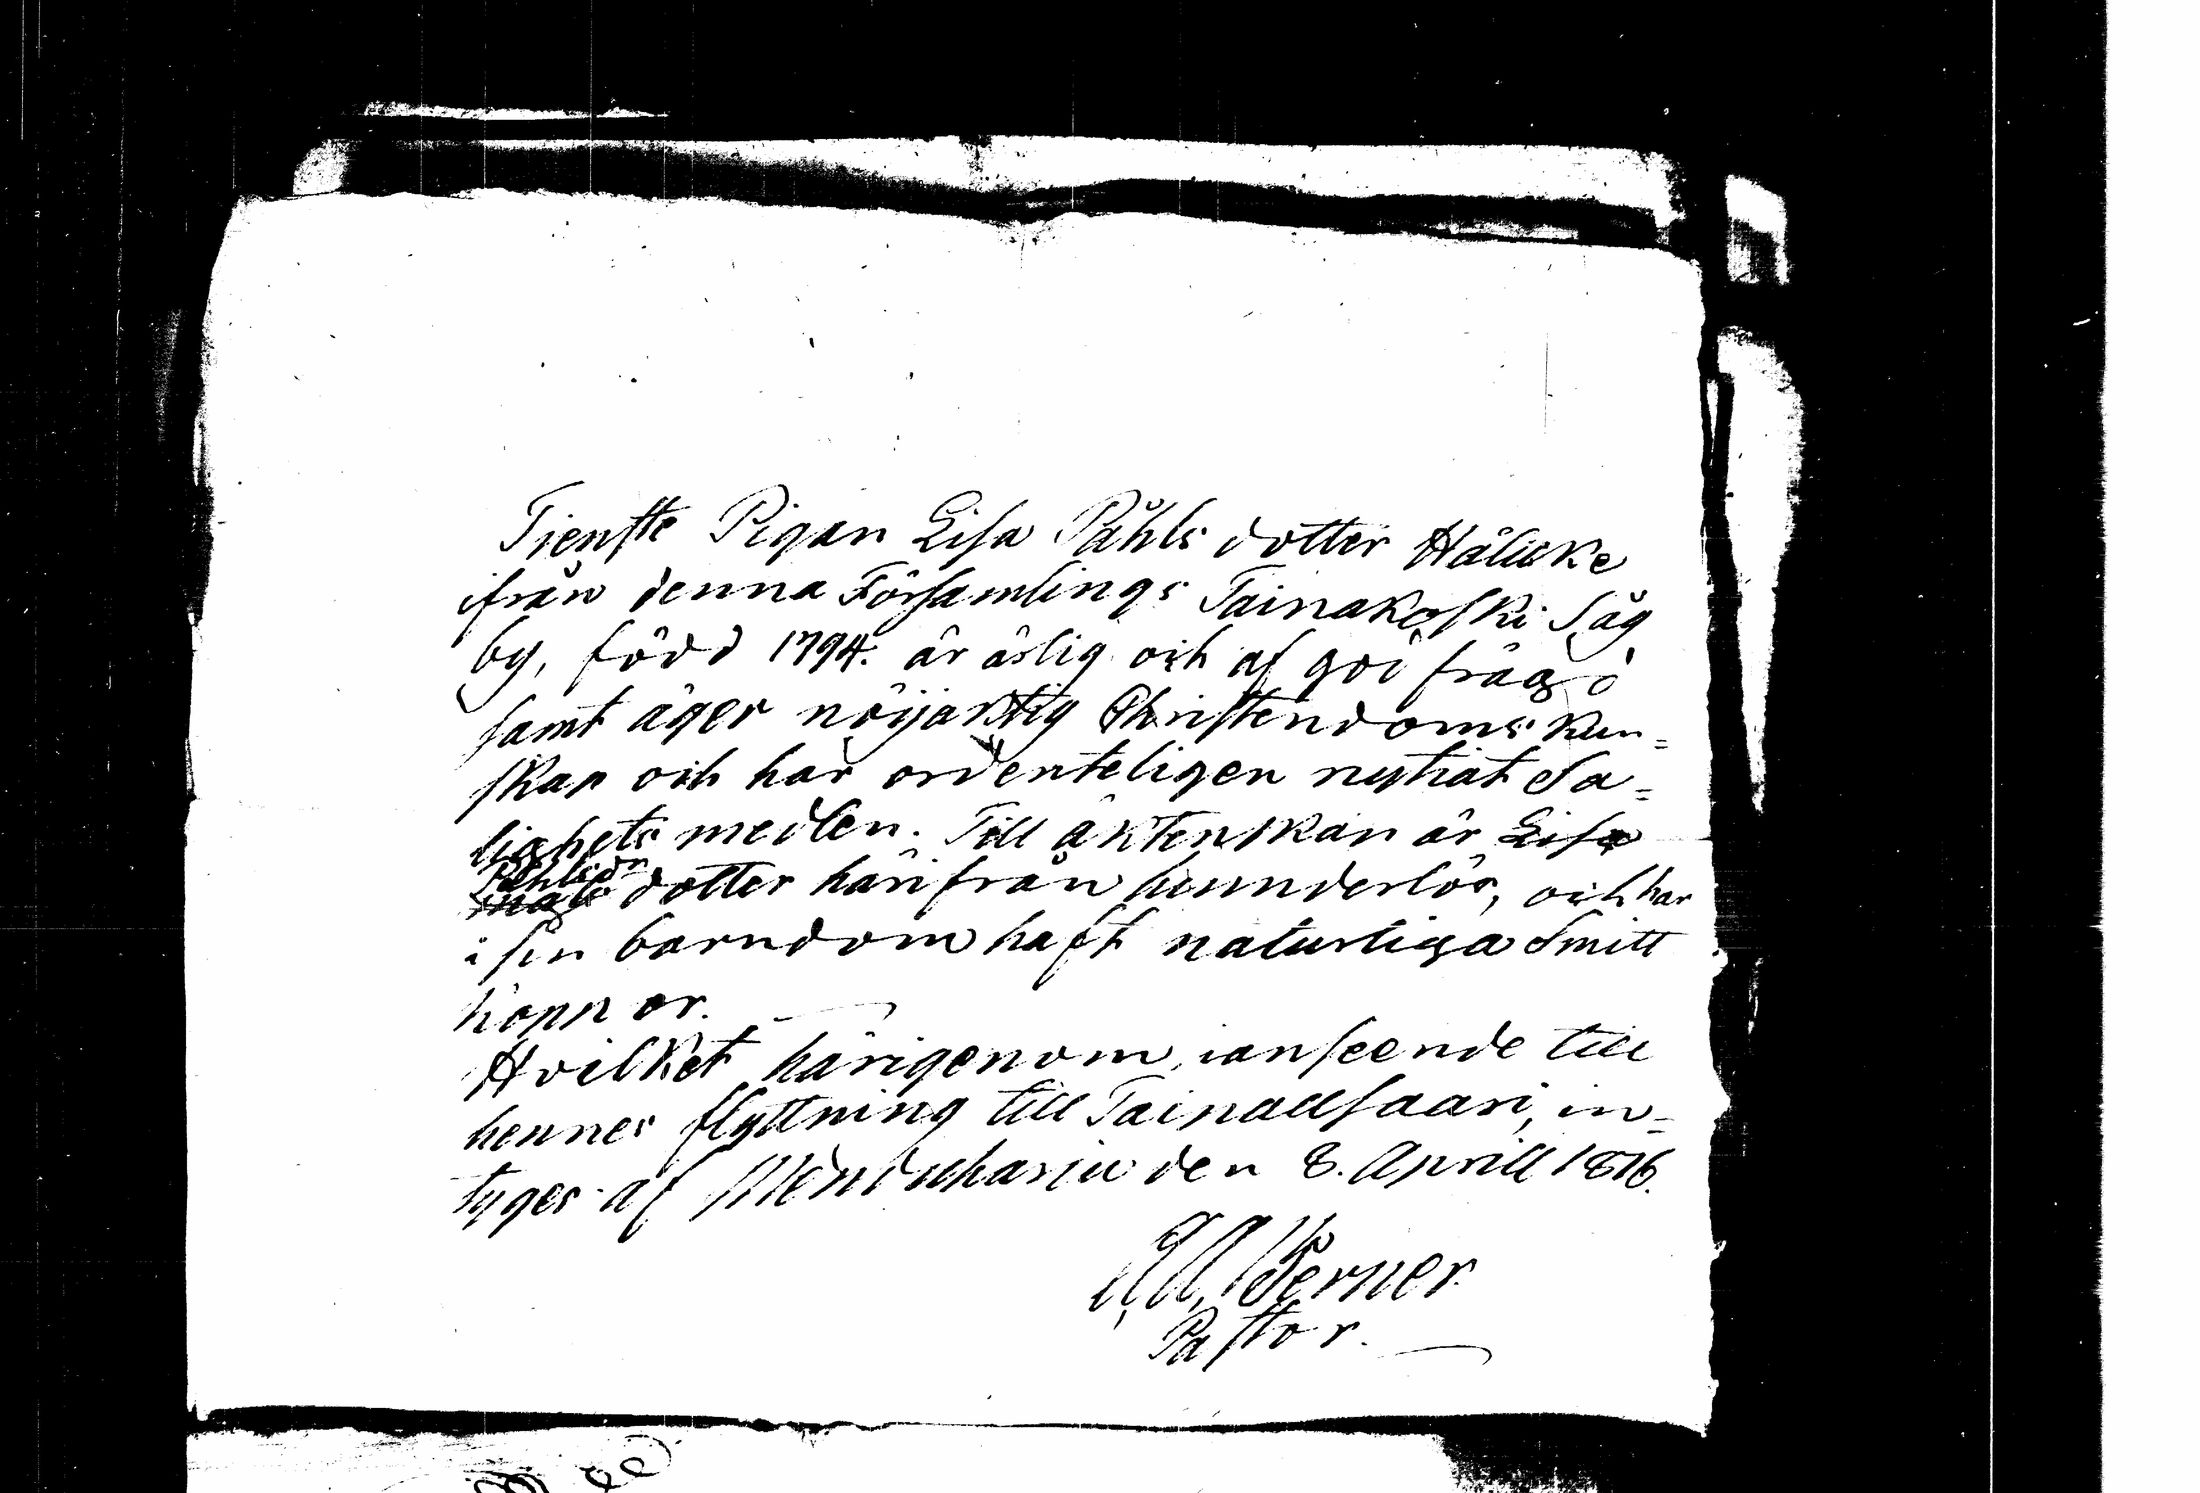 Tienste Pigan Lisa Påhls dotter Hälicke
ifrån denna Församlings Tainakoski Såg
by, född 1794. är ärlig och af god frägd
samt äger nöijaktig Christendoms kun=
skap och har ordenteligen nyttiat Sa=
lighets medlen. Till äktenskap är Lisa
Påhlsdr dotter härifrån hinnderlös, och har
i sin barndom haft naturliga Smitt
koppor.
Hvilket härigenom, i anseende till
hennes flyttning till Tainallsaari, in=
tyges af Menduharju den 8. Aprill 1816.
A. A. Perner
Pastor.